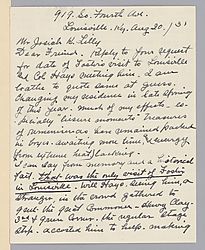 919. So. Fourth Ave.
Louisville. Ky. Aug 20. /31
Mr. Josiah K. Lilly
Dear Friend, Reply to your request
for date of Foster's visit to Louisville
& Col Hays meeting him. I am
loathe to quote dates at guess.
Changing my residence in late spring
of this year. Much of my effects - es-
pecially leisure moments treasures
of reminiscences has remained packed
in boxes. awaiting more time, & energy
from intense heat, lacking.
I can say from memory and a historical
fact, that was the only visit of Foster
in Louisville. Will Hays. seeing him, a
stranger, in the crowd gathered to
greet the great Commoner - Henry Clay -
3rd & Main Corner. the regular Stage
stop. accosted him to help. making